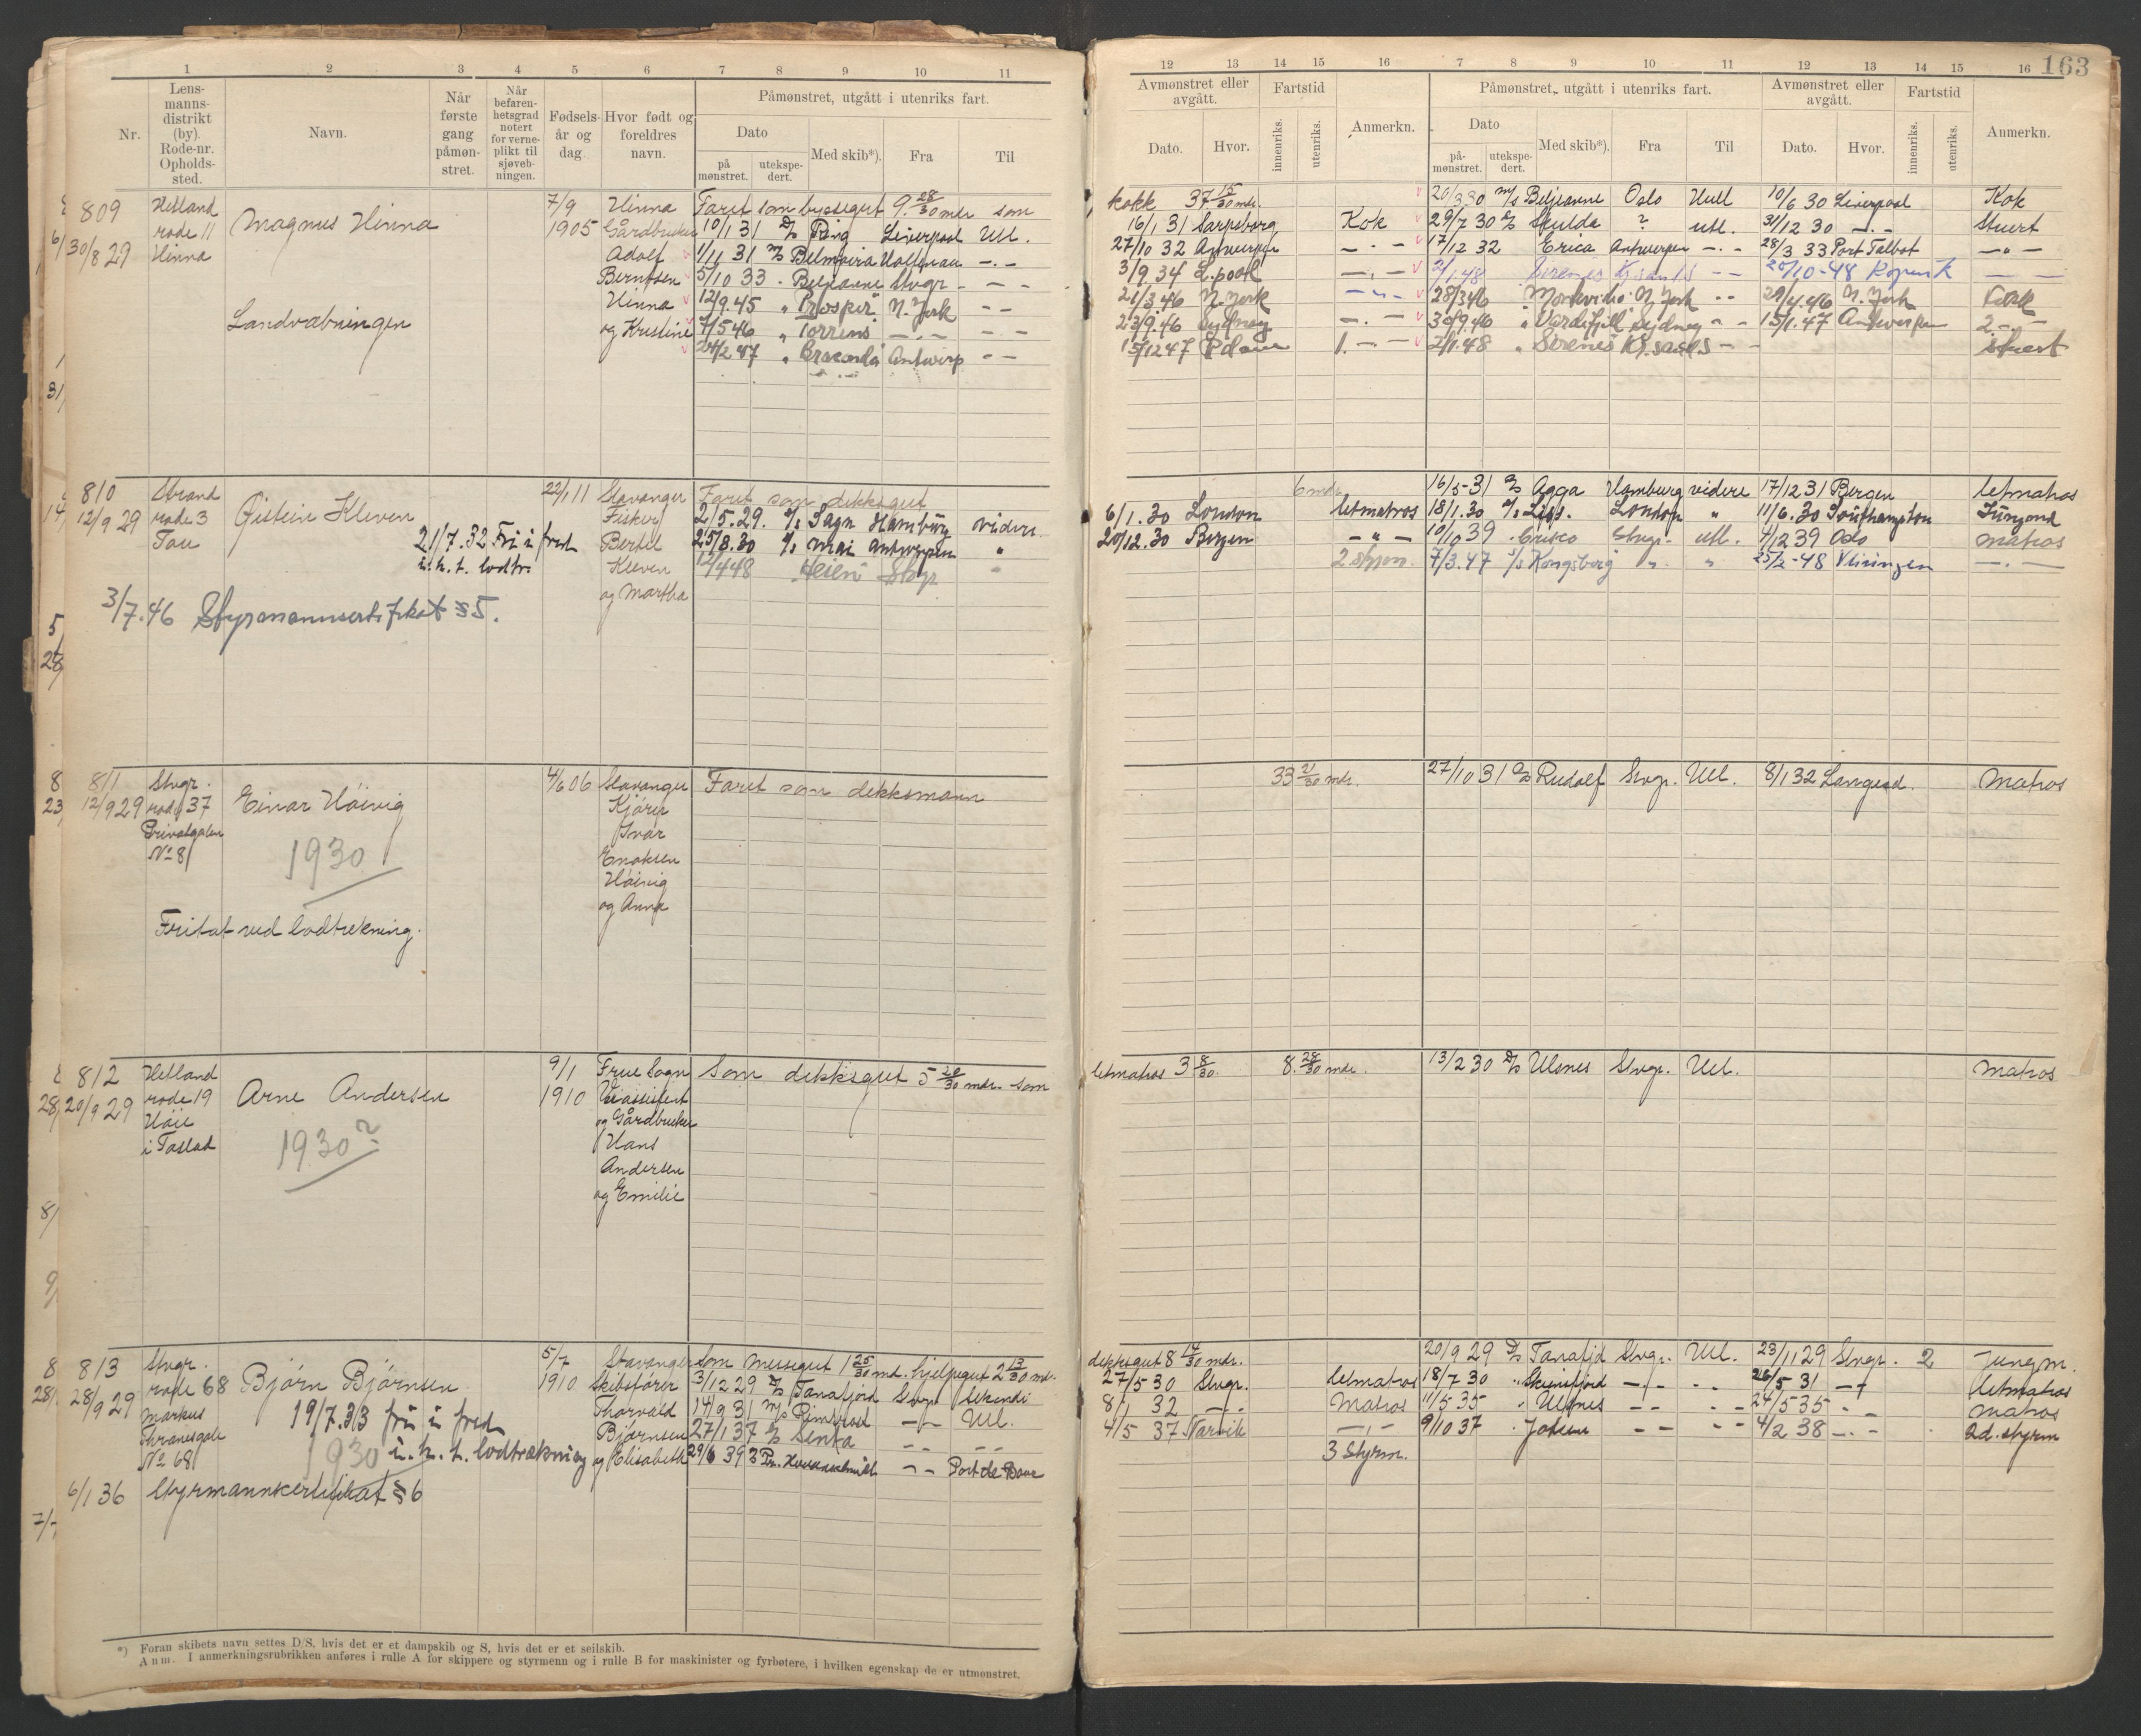 1 2 3 4 5 6 7 8 9 10 11
Nr.
Lens-
manns-
distrikt
(by).
Rode-nr.
Opholds-
sted.
Navn.
Når
første
gang
påmøn-
stret.
Når
befaren-
hetsgrad
notert
for verne-
plikt til
sjøveb-
ningen.
Fødsels-
år og
dag.
Hvor født og
foreldres
navn.
Påmønstret, utgått i utenriks fart.
Dato
på
mønstret.
utekspe-
dert.
Med skib*).
Fra
Til
809 Hetland Magnus Hinna 7/9 Hinna Faret som byssegut 9 28/30 mdr som
30/8 29 rode 11 1905 Gårdbruker 10/1 31 D/s Ring Liverpool Utl.
Hinna Adolf 1/11 31 M/s Belmoira -.-
Berntsen 5/10 33 Beljeanne Stvgr - - -
Hinna 12/9.45 " Prosper" N. York - -
Landvæbningen og Kristine 7/5 46 " Torrens - . - - -
24/2 47 " Antwerp - -
810 Strand Øistein Kleven 22/1 11 Stavanger Faret som dekksgut
12/9 29 rode 3 Fisker 2/5.29. Sagn Hamburg videre
Tau 21/7.32 Fri i fred Bertel 25/8.30 Mai Antwerpen "
i. h. t. lodtr. Kleven 12/4 48 Heien Stvgr "
og Martha
3/7.46 Styrmannsertifikat §5.
811 Stvgr. Einar Høivig 4/6 06 Stavanger Faret som dekksmann
12/9 29 rode 37
No 8 1930 Ivar
Høivig
og Anna
Fritat ved lodtrekning.
812 Hetland Arne Andersen 9/1 Frue Sogn Som dekksgut 5 20/30 mdr. som
20/9 29 rode 19 1910
og Gårdbruker
1930? Hans
Andersen
og Emilie
813 Stvgr. Bjørn Bjørnsen 5/7 Stavanger Som messegut 1 25/30 md. hjelpegut 2 13/30 md.
28/9 29 rode 68 1910 Skibsfører 3/12 29 D/s Tanafjord Stvgr
Markus 19/7.33 fri i fred Thorvald 14/9 31 M/s -"- Utl.
Thranesgate Bjørnsen 27/1 37 D/s Senta - - - -
No 68 1930 i. h. t. lodtrækning og Elisabeth 29/6 39 - - Port de
6/1 36 Styrmannsertifikat §6
*) Foran skibets navn settes D/S, hvis det er et dampskib og S, hvis det er et seilskib.
Anm. I anmerkningsrubrikken anføres i rulle A for skippere og styrmenn og i rulle B for maskinister og fyrbøtere, i hvilken egenskap de er utmønstret.
12 13 14 15 16 7 8 9 10 11 12 13 14 15 16 163
Avmønstret eller
avgått.
Dato.
Hvor.
Fartstid
innenriks.
utenriks.
Anmerkn.
Påmønstret, utgått i utenriks fart.
Dato
på-
mønstret.
utekspe-
dert.
Med skib*).
Fra
Til
Avmønstret eller
avgått.
Dato.
Hvor.
Fartstid
innenriks.
utenriks.
Anmerkn.
kokk 37 15/30 mdr. 20/3 30 M/s Beljeanne Oslo Hull 10/6 30 Liverpool Kok
16/1 31 Sarpsborg Kok 29/7 30 D/s Skulda ? utl. 31/12 30 -.- Stuert
27/10 32 Antwerpen -.- 17/12 32 Erica Antwerpen -.- 28/3 33 Port Talbot -"-
3/9 34 L.pool -.- 2/1.48 Sirenes - - 20/10-48
21/3 46 N. York -.- 28/3 46 Montevideo N. York - - 29/4.46 N. York Kokk
23/9.46 Sydney -.- 30/9.46 Vardefjell Sydney - - 15/1.47 Antwerpen 2 -.-
15/12 47 1. -.- 2/1.48 " Sirenes - - stuert
6 mdr. 16/5-31 D/s Agga Hamburg videre 17/12 31 Bergen letmatros
6/1.30 London letmatros 18/1.30 London " 11/6.30 Southampton Jungmd
20/12.30 Bergen -"- 10/10 39 Crisco Stvgr. utl. 4/12 39 Oslo Matros
2 styrm. 7/3.47 Kongsborg " " 25/2-48 -.-
33 21/30 mdr. 27/10 31 D/s Rudolf Stvgr. Utl. 8/1 32 Langesd. Matros
letmatros 3 8/30. 8. 28/30 mdr. 13/2 30 D/s Ulsnes Stvgr. Utl. Matros
dekksgut 8 14/30 mdr. 20/9 29 D/s Tanafjd Stvgr. Utl. 23/11 29 Stvgr. 2 Jungm.
27/5 30 Stvgr. letmatros 18/7 30 - - - . 26/5 31 -"- letmatros
8/1 32 -.- Matros 11/5 35 " Ulsnes - - - - 24/5 35 - - Matros
4/5 37 Narvik -,- 9/10 37 - - - - 4/2 38 -.- 2d. styrm
3 Styrm.